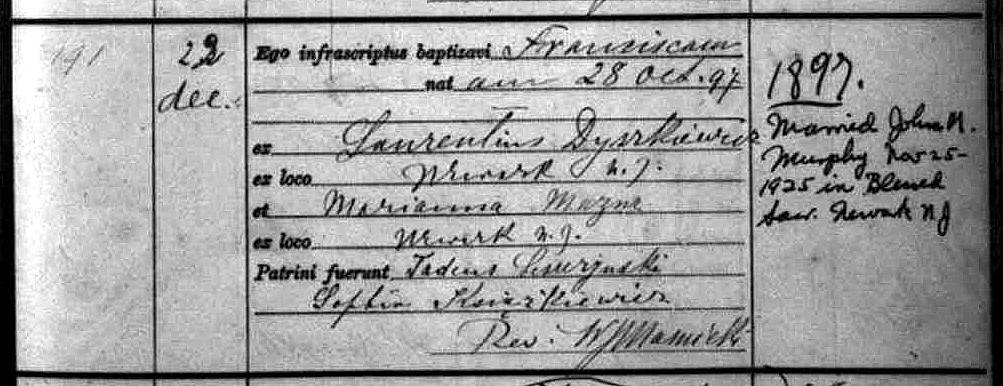 191
22
dec.
Ego infrascriptus baptizavi Franciscam
nat am 28 Oct. 97
ex Laurentius Dyszkiewicz
ex loco Newark N.J.
et Marianna Mazna
ex loco Newark N.J.
Patrini fuerunt Tadeus
Sophia Książkiewicz
Rev.
1897.
Married John N.
Murphy Nov 25-
1925 in Blessed
Sacr. Newark NJ